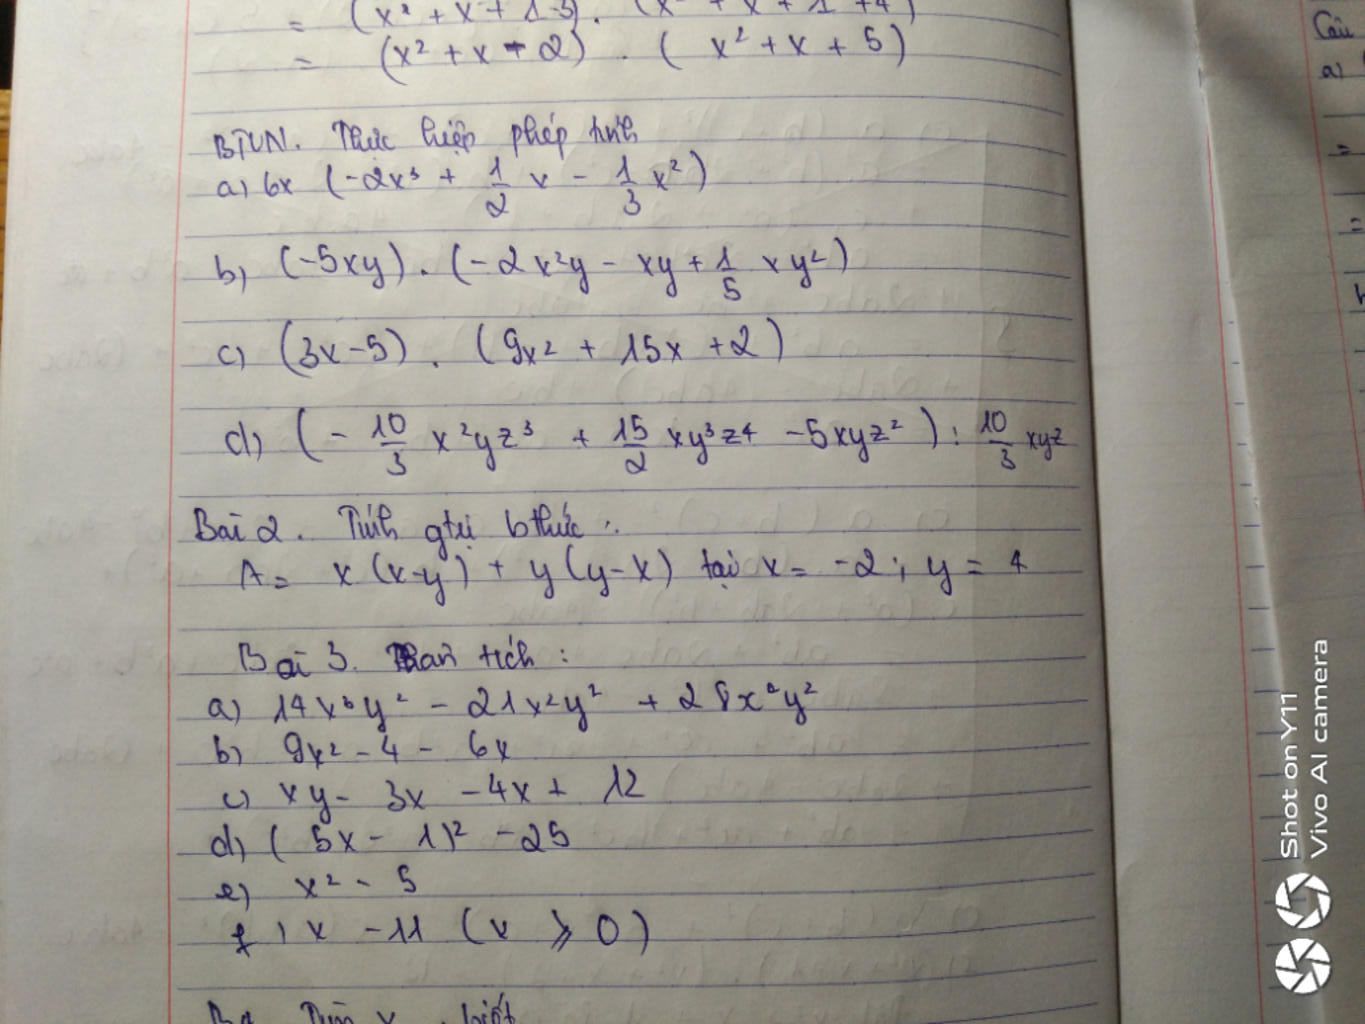 = (x² + x + 1 - 3) . (x² + x + 1 + 4)
= (x² + x - 2) . ( x² + x + 5)
BTVN. Thực hiện phép tính
a) 6x (-2x³ + 1/2 x - 1/3 x²)
b) (-5xy) . (-2x²y - xy + 1/5 xy²)
c) (3x - 5) . (9x² + 15x + 2)
d) ( - 10/3 x²yz³ + 15/2 xy³z⁴ - 5xyz² ) : 10/3 xyz
Bài 2. Tính gtrị bthức :
A = x (x - y) + y (y - x) tại x = -2 ; y = 4
Bài 3. Phân tích :
a) 14x³y² - 21x²y² + 28x²y²
b) 9x² - 4 - 6x
c) xy - 3x - 4x + 12
d) ( 5x - 1)² - 25
e) x² - 5
f) x - 11 (x ⩾ 0)
B4. Tìm x, biết
Câu
a)
=
=
Shot on Y11
Vivo AI camera